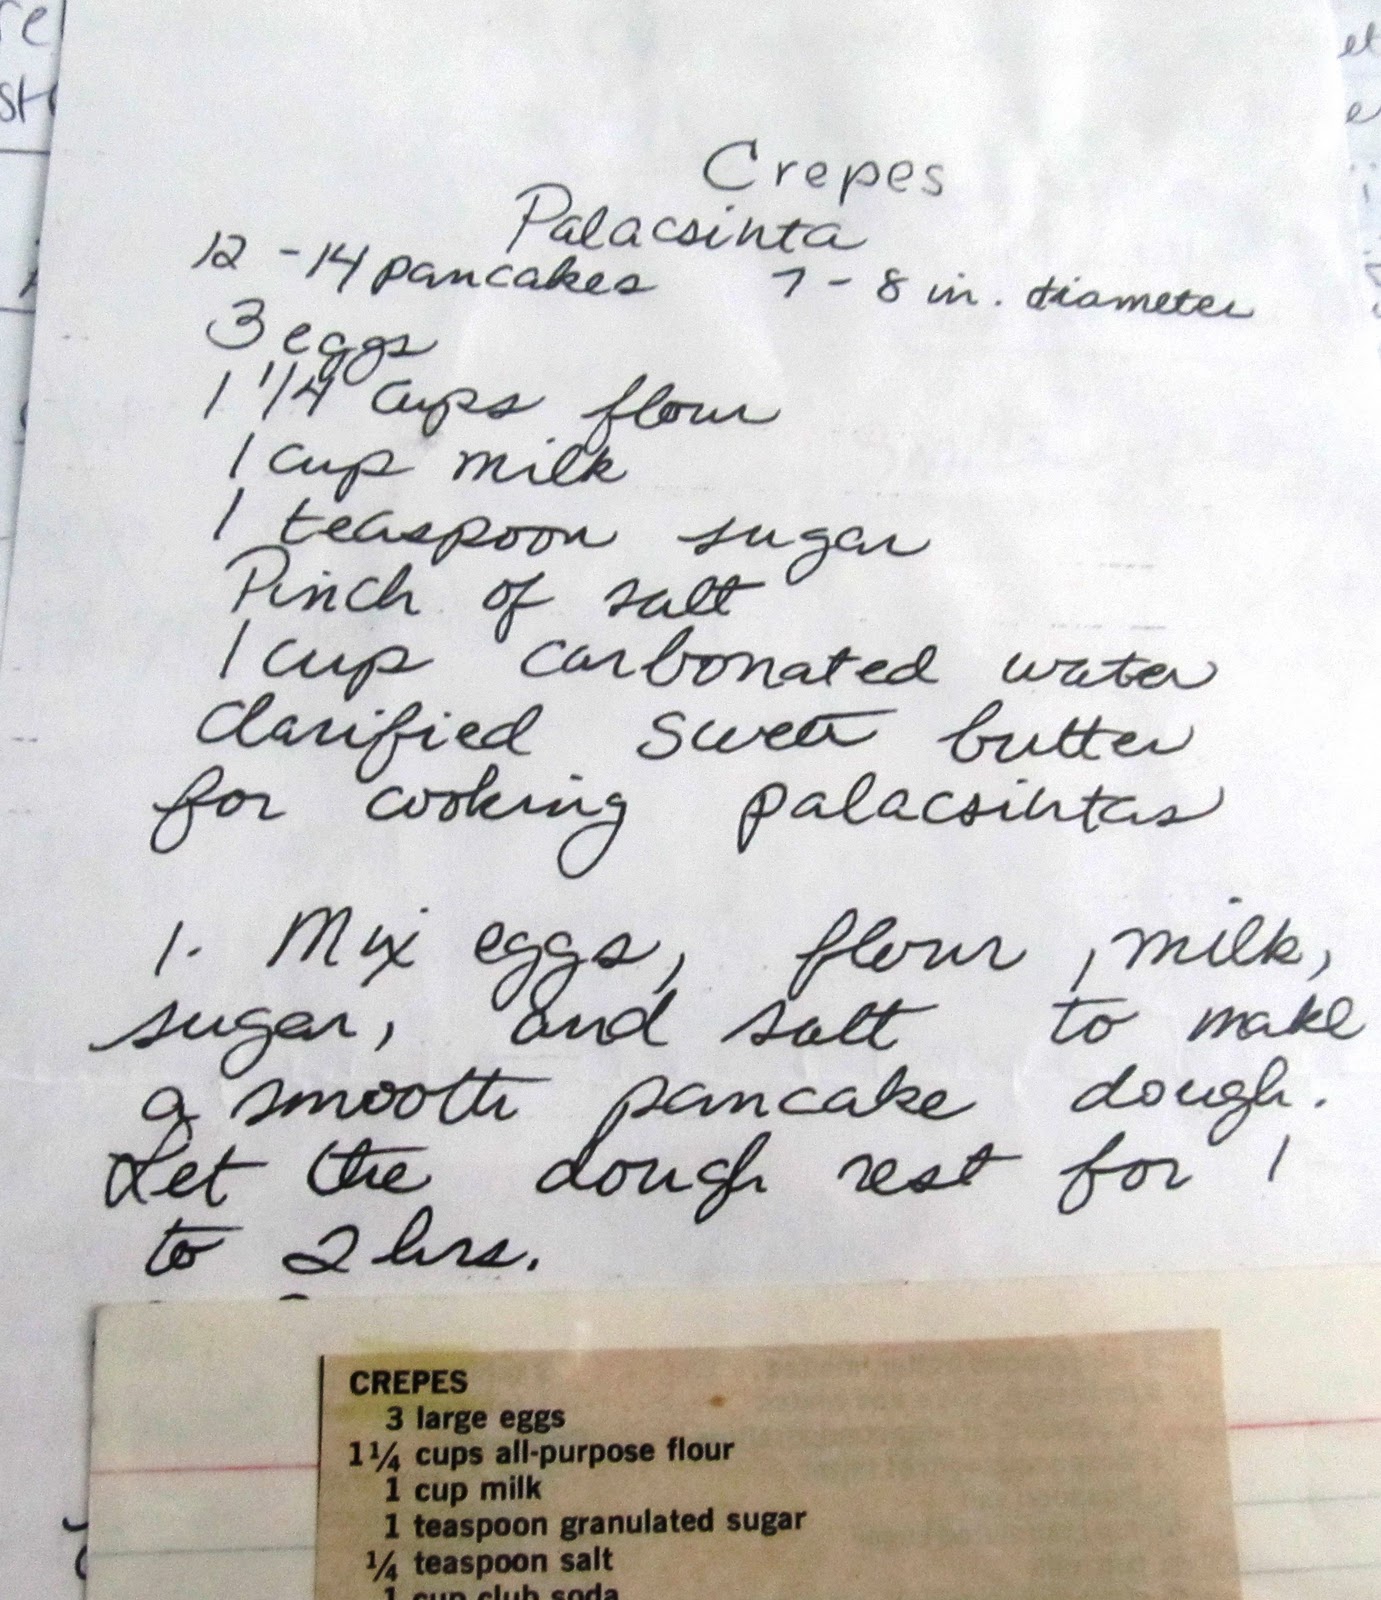 Crepes
Palacsinta
12 - 14 pancakes 7 - 8 in. diameter
3 eggs
1 1/4 cups flour
1 cup milk
1 teaspoon sugar
Pinch of salt
1 cup carbonated water
Clarified sweet butter
for cooking palacsintas
1. Mix eggs, flour, milk,
sugar, and salt to make
a smooth pancake dough.
Let the dough rest for 1
to 2 hrs.
CREPES
3 large eggs
1¼ cups all-purpose flour
1 cup milk
1 teaspoon granulated sugar
¼ teaspoon salt
1 cup club soda